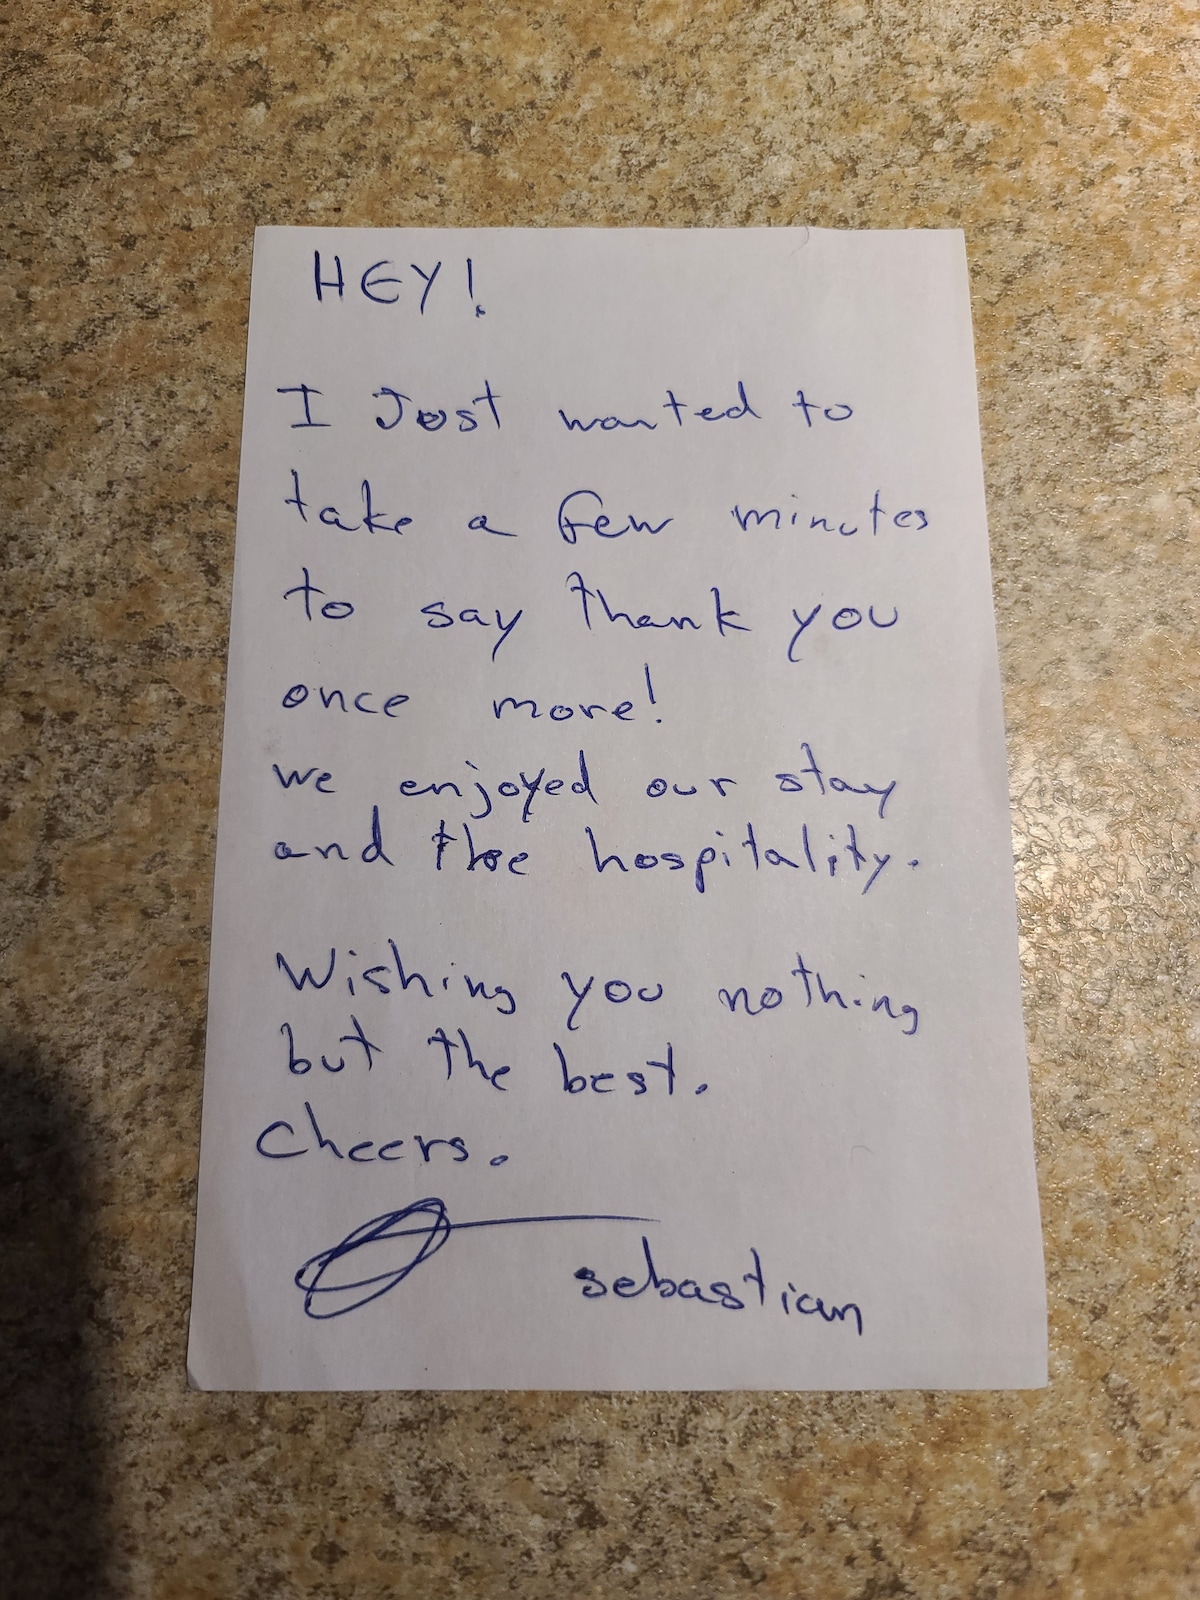 HEY!
I Just wanted to
take a few minutes
to say thank you
once more!
we enjoyed our stay
and the hospitality.
Wishing you nothing
but the best.
Cheers.
sebastian